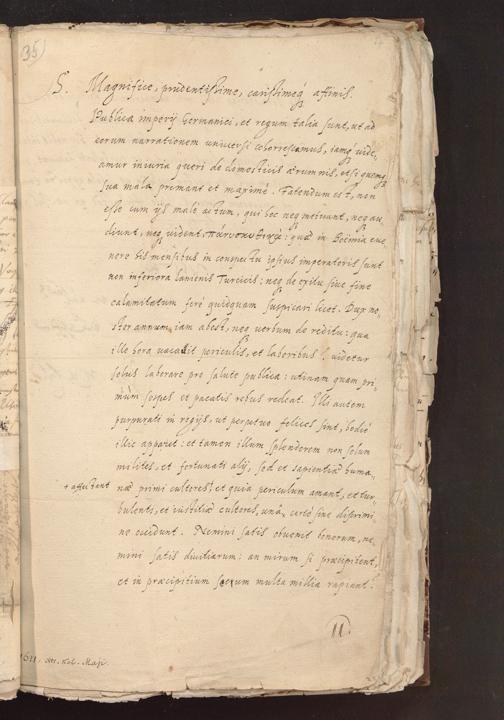 35
S. Magnifice, prudentissime, carissimeq affinis.
Publica imperij Germanici, et regum talia sunt, ut ad
eorum narrationem universi cohorrescamus, iamq vide,
amur iniuria queri de domesticis ærumnis, etsi quemq
sua mala primant et maximè. Fatendum est, non
esse cum ijs male actum, qui hoc neq metuunt, neq au,
diunt, neq vident, quæ in Boëmia eve,
nere bis mensibus in conspectu ipsius imperatoris sunt
non inferiora lanienis Turcicis: neq de exitu sive fine
calamitatum ferè quidquam suspicari licet. Dux no,
ster annum iam abest, neq verbum de reditu: qua
ille hora vacabit periculis, et laboribus? videtur
solus laborare pro salute publica: utinam quam pri,
mum sospes et pacatis rebus redeat. Illi autem
purpurati in regijs, ut perpetuo felices sint, hodiè
illic apparet: et tamen illum splendorem non solum
milites, et fortunati alij, sed et sapientiæ huma,
+ affectant
næ primi cultores, et quia periculum amant, et tur,
bulenti, et iustitiæ cultores, unà, certè sine discrimi,
ne occidunt. Nemini satis obvenit honorum, ne,
mini satis divitiarum: an mirum si præcipitent,
et in præcipitium secum multa millia rapiant?
11
1611. Kal. Maji.